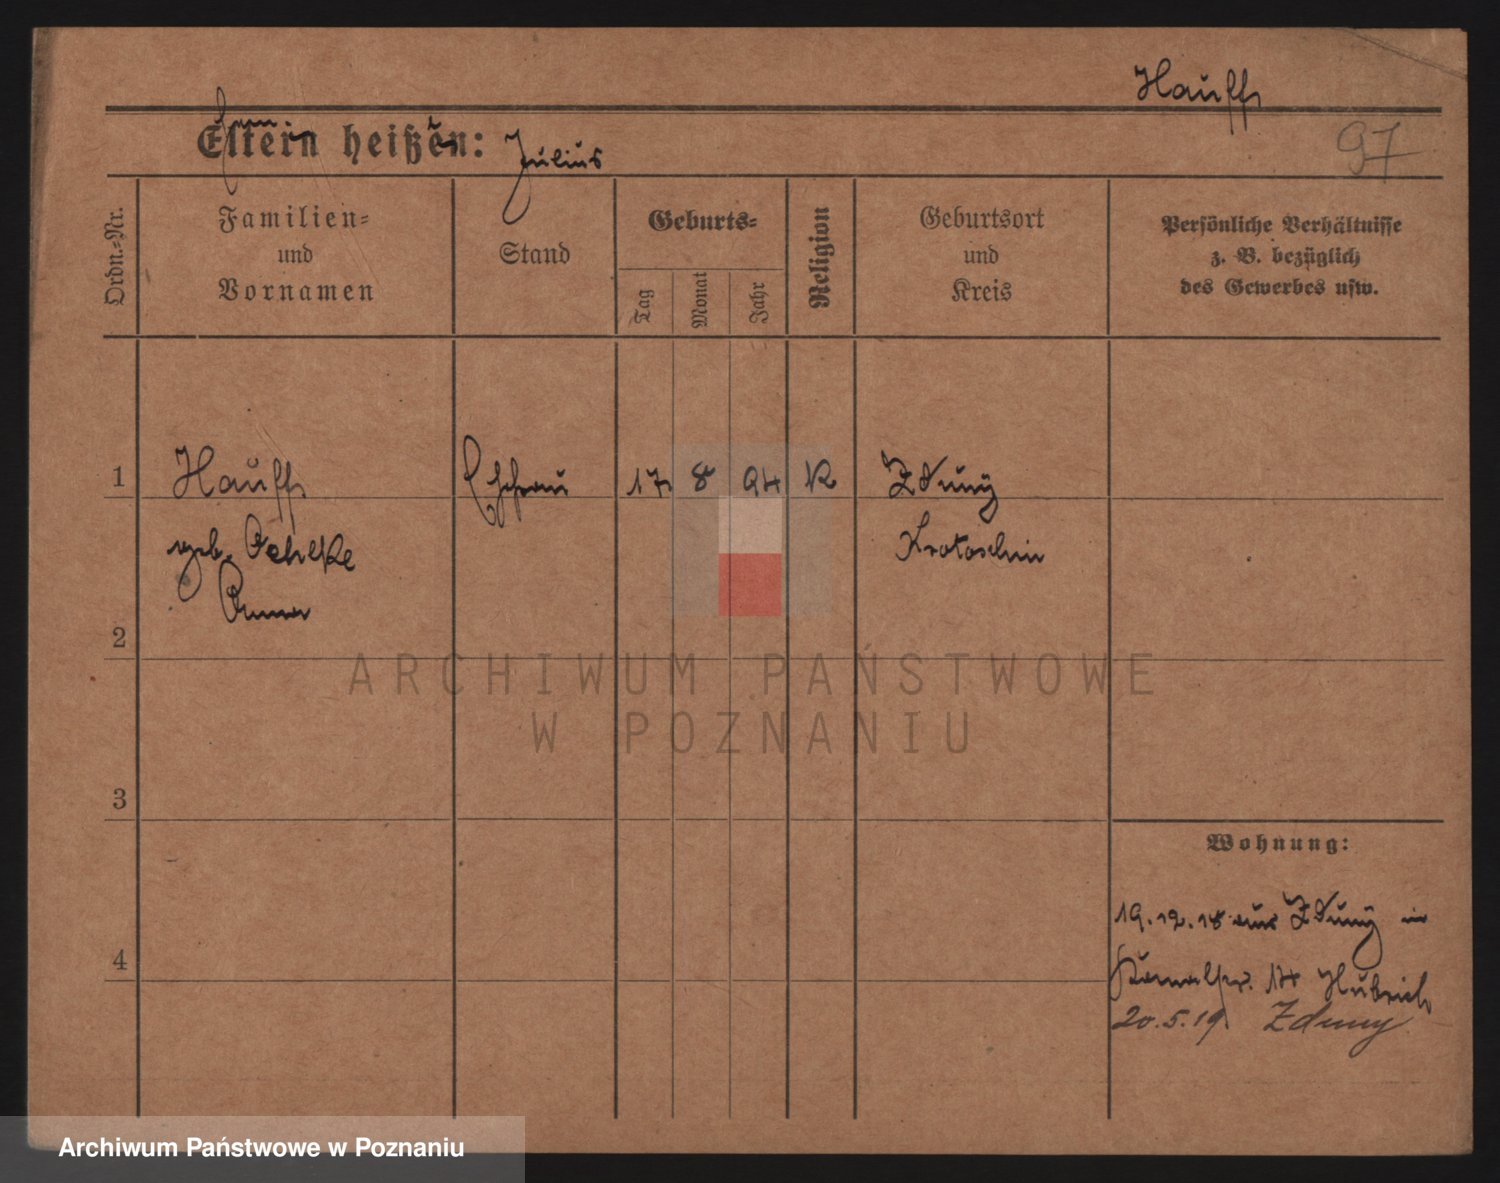 Hauffe
97
Eltern heißen: Julius
Ordn.-Nr.
Familien=
und
Vornamen
Stand
Geburts=
Tag
Monat
Jahr
Religion
Geburtsort
und
Kreis
Persönliche Verhältnisse
z. B. bezüglich
des Gewerbes usw.
1 Hauffe Ehefrau 17 8 94 K Zduny
geb. Oehlke Krotoschin
Anna
2
3
4
Wohnung:
19.12.18 aus Zduny in
14
20.5.19. Zduny
ARCHIWUM PAŃSTWOWE
W POZNANIU
Archiwum Państwowe w Poznaniu